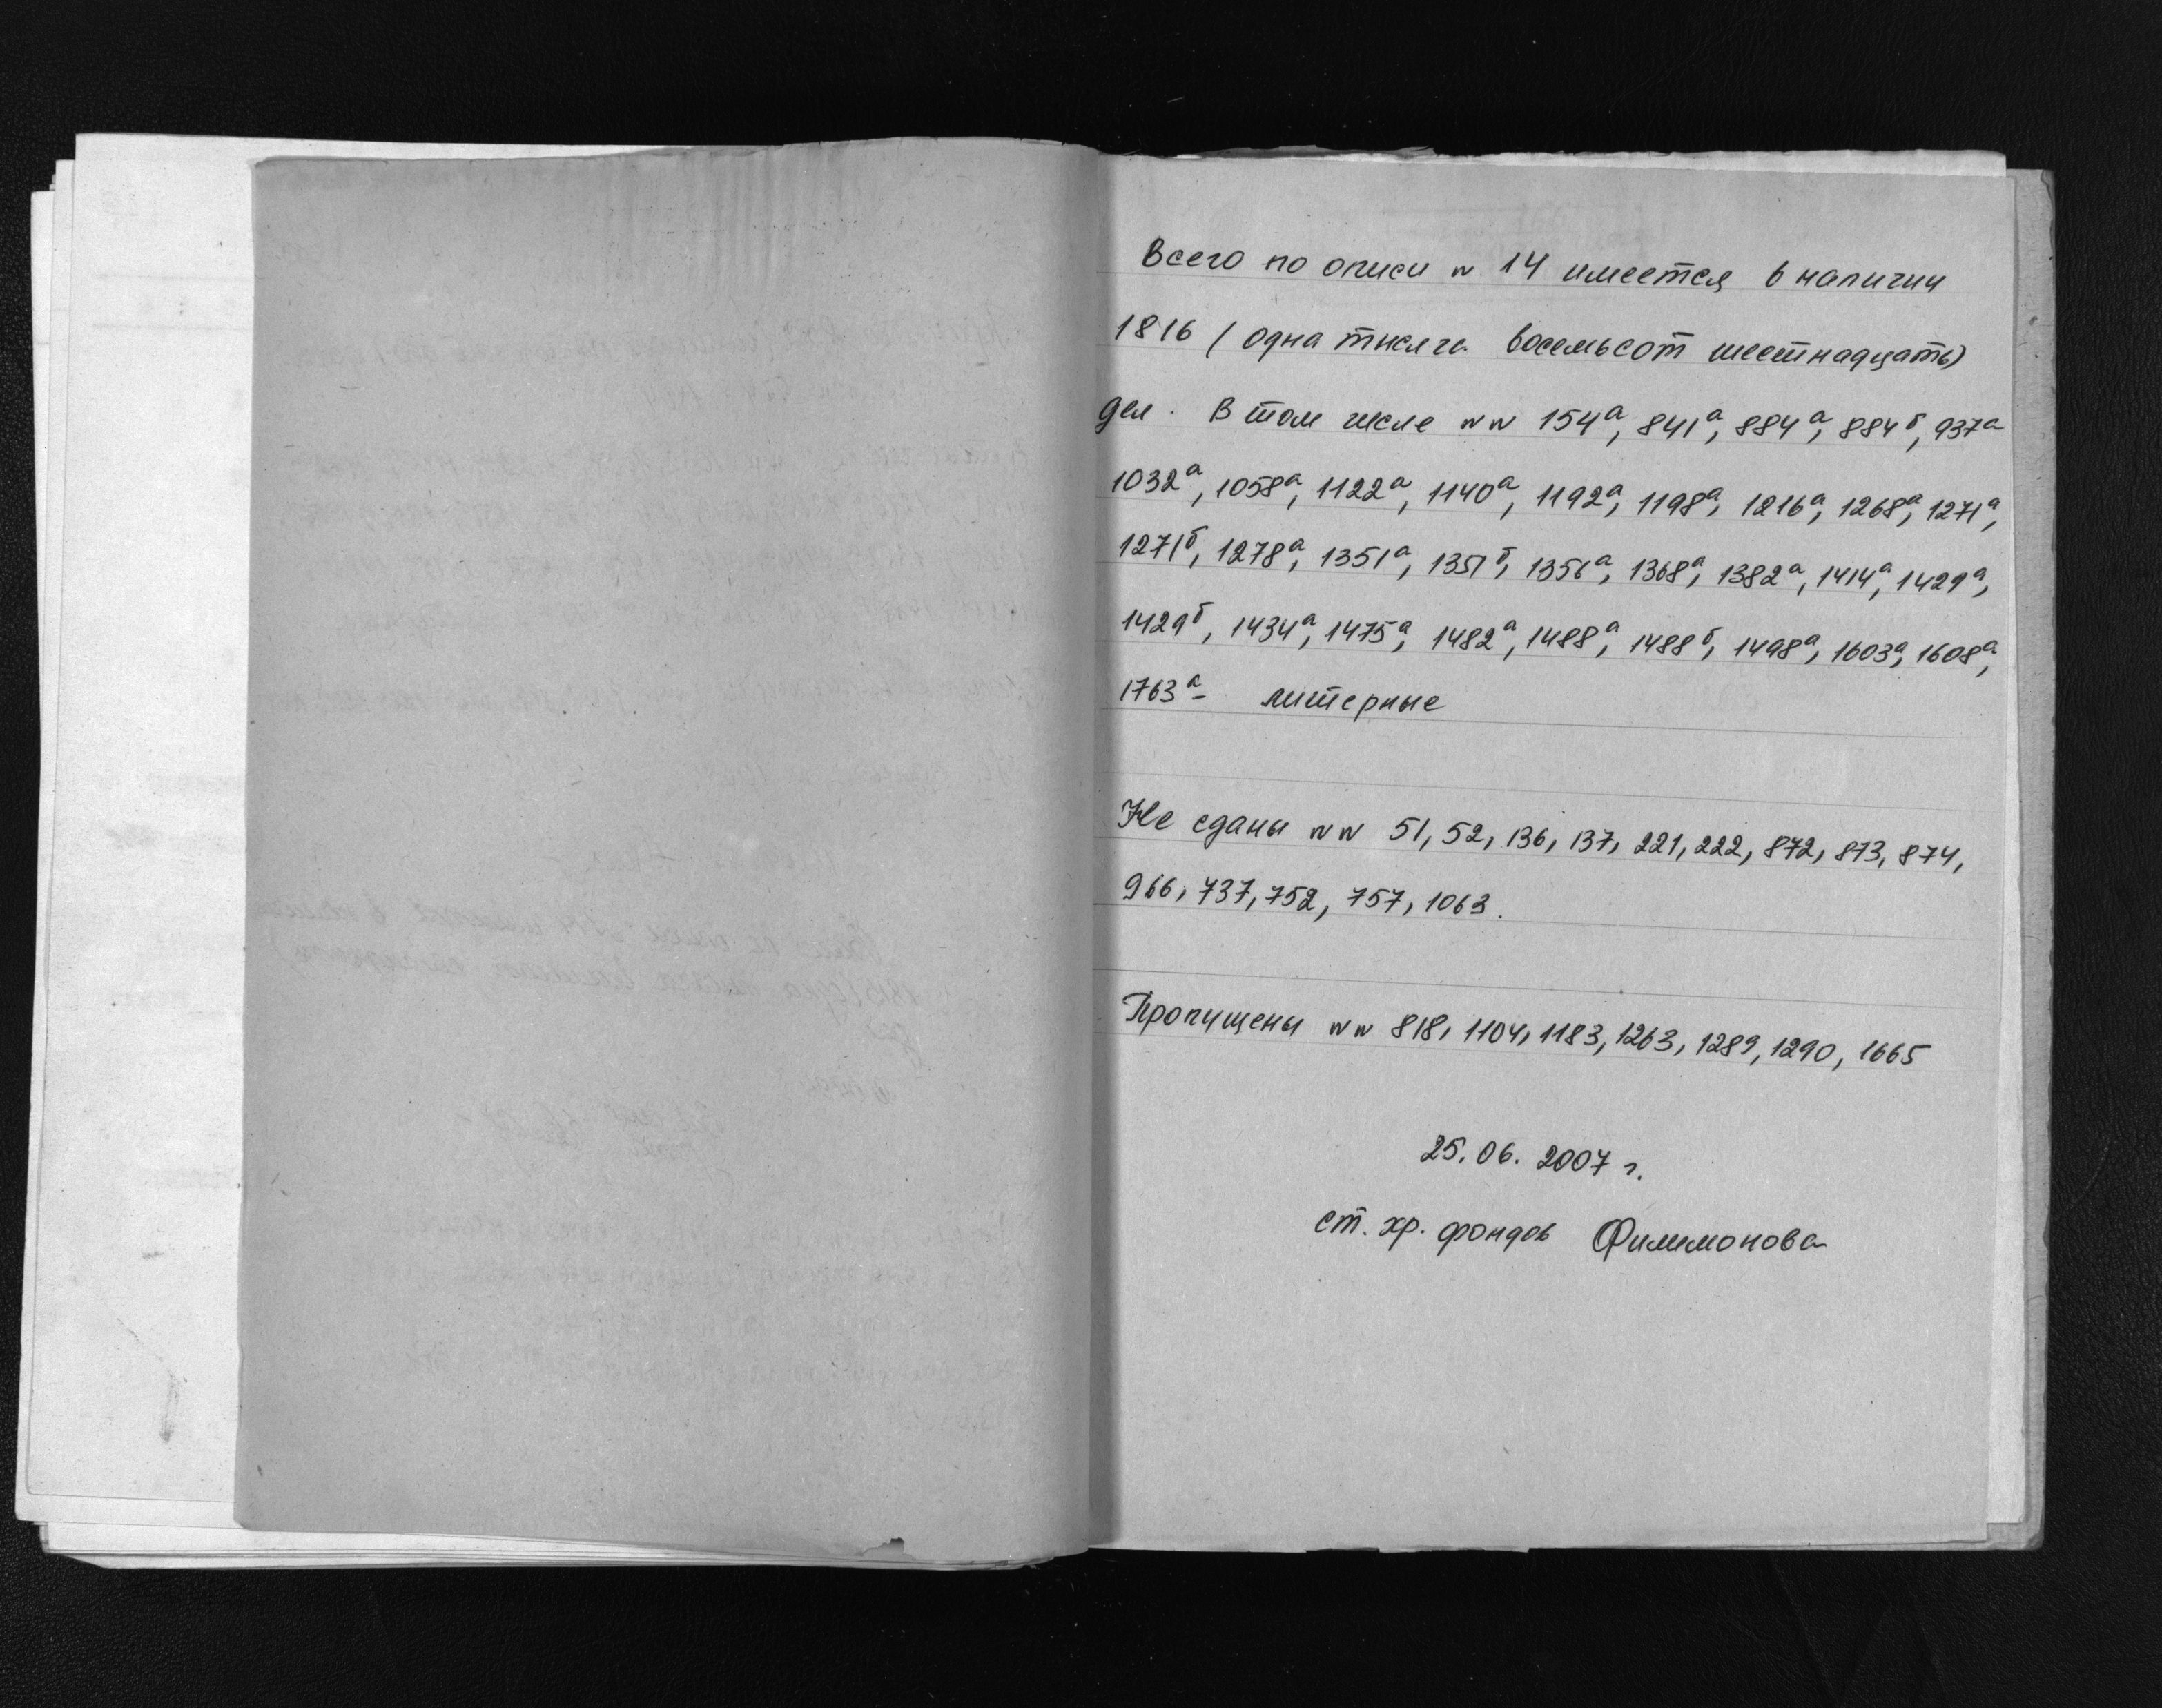 Всего по описи № 14 имеется в наличии
1816 (одна тысяча восемьсот шестнадцать)
дел. В том числе №№ 154а, 841а, 884а, 884б, 937а
1032а, 1058а, 1122а, 1140а, 1192а, 1198а, 1216а, 1268а, 1271а,
1271б, 1278а, 1351а, 1351б, 1356а, 1368а, 1382а, 1414а, 1429а,
1429б, 1434а, 1475а, 1482а, 1488а, 1488б, 1498а, 1603а, 1608а,
1763а - литерные
Не сданы №№ 51, 52, 136, 137, 221, 222, 872, 873, 874,
966, 737, 752, 757, 1063.
Пропущены №№ 818, 1104, 1183, 1263, 1289, 1290, 1665
25.06.2007 г.
ст. хр. фондов Филимонова